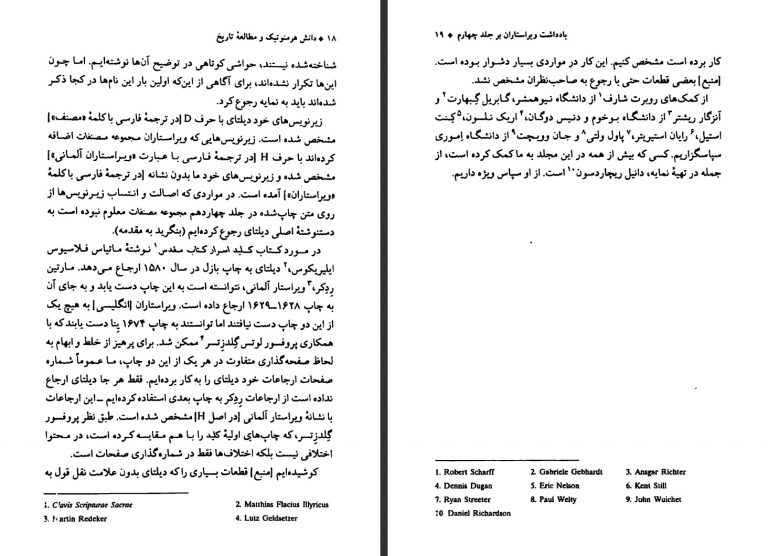 ۱۸ ● دانش هرمنوتیک و مطالعهٔ تاریخ
شناخته‌شده نیستند، حواشی کوتاهی در توضیح آن‌ها نوشته‌ایم. اما چون
این‌ها تکرار نشده‌اند، برای آگاهی از این‌که اولین بار این نام‌ها در کجا ذکر
شده‌اند باید به نمایه رجوع کرد.
زیرنویس‌های خود دیلتای با حرف D [در ترجمهٔ فارسی با کلمهٔ «مصنف»]
مشخص شده است. زیرنویس‌هایی که ویراستاران مجموعه مصنفات اضافه
کرده‌اند با حرف H [در ترجمهٔ فارسی با عبارت «ویراستاران آلمانی»]
مشخص شده و زیرنویس‌های خود ما بدون نشانه [در ترجمهٔ فارسی با کلمهٔ
«ویراستاران»] آمده است. در مواردی که اصالت و انتساب زیرنویس‌ها از
روی متن چاپ‌شده در جلد چهاردهم مجموعه مصنفات معلوم نبوده است به
دستنوشتهٔ اصلی دیلتای رجوع کرده‌ایم (بنگرید به مقدمه).
در مورد کتاب کلید اسرار کتاب مقدس۱ نوشتهٔ ماتیاس فلاسیوس
ایلیریکوس،۲ دیلتای به چاپ بازل در سال ۱۵۸۰ ارجاع می‌دهد. مارتین
رِدِکر،۳ ویراستار آلمانی، نتوانسته است به این چاپ دست یابد و به جای آن
به چاپ ۱۶۲۸–۱۶۲۹ ارجاع داده است. ویراستاران [انگلیسی] به هیچ یک
از این دو چاپ دست نیافتند اما توانستند به چاپ ۱۶۷۴ یِنا دست یابند که با
همکاری پروفسور لوتس گِلدزتسر۴ ممکن شد. برای پرهیز از خلط و ابهام به
لحاظ صفحه‌گذاری متفاوت در هر یک از این دو چاپ، ما عموماً شماره
صفحات ارجاعات خود دیلتای را به کار برده‌ایم. فقط هر جا دیلتای ارجاع
نداده است از ارجاعات رِدِکر به چاپ بعدی استفاده کرده‌ایم –این ارجاعات
با نشانهٔ ویراستار آلمانی [در اصل H] مشخص شده است. طبق نظر پروفسور
گِلدزتسر، که چاپ‌های اولیهٔ کلید را با هم مقایسه کرده است، در محتوا
اختلافی نیست بلکه اختلاف‌ها فقط در شماره‌گذاری صفحات است.
کوشیده‌ایم [منبع] قطعات بسیاری را که دیلتای بدون علامت نقل قول به
1. Clavis Scripturae Sacrae 2. Matthias Flacius Illyricus
3. Martin Redeker 4. Lutz Geldsetzer
یادداشت ویراستاران بر جلد چهارم ● ۱۹
کار برده است مشخص کنیم. این کار در مواردی بسیار دشوار بوده است.
[منبع] بعضی قطعات حتی با رجوع به صاحب‌نظران مشخص نشد.
از کمک‌های روبرت شارف۱ از دانشگاه نیوهمشر، گابریل گبهارت۲ و
آنزگار ریشتر۳ از دانشگاه بوخوم و دنیس دوگان،۴ اریک نلسون،۵ کِنت
استیل،۶ رایان استیریتر،۷ پاول ولتی۸ و جان وویچت۹ از دانشگاه اِموری
سپاسگزاریم. کسی که بیش از همه در این مجلد به ما کمک کرده است، از
جمله در تهیهٔ نمایه، دانیل ریچاردسون۱۰ است. از او سپاس ویژه داریم.
1. Robert Scharff 2. Gabriele Gebhardt 3. Ansgar Richter
4. Dennis Dugan 5. Eric Nelson 6. Kent Still
7. Ryan Streeter 8. Paul Welty 9. John Wuichet
10 Daniel Richardson